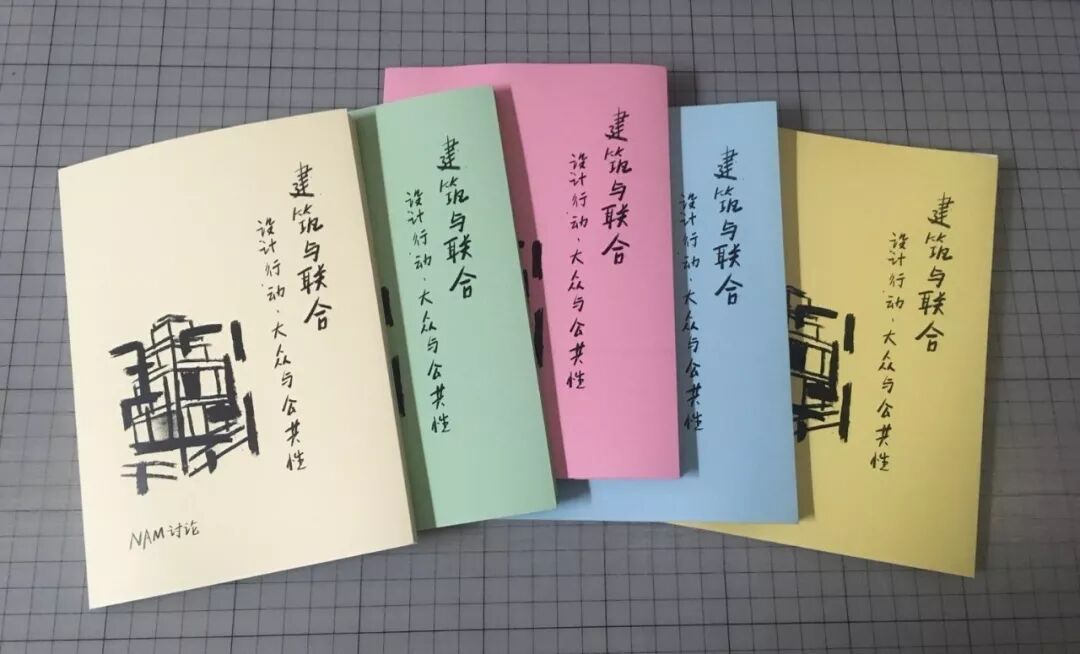 建筑与联合
设计行动、大众与公共性
NAM讨论
建筑与联合
设计行动、大众与公共性
建筑与联合
设计行动、大众与公共性
建筑与联合
设计行动、大众与公共性
建筑与联合
设计行动、大众与公共性